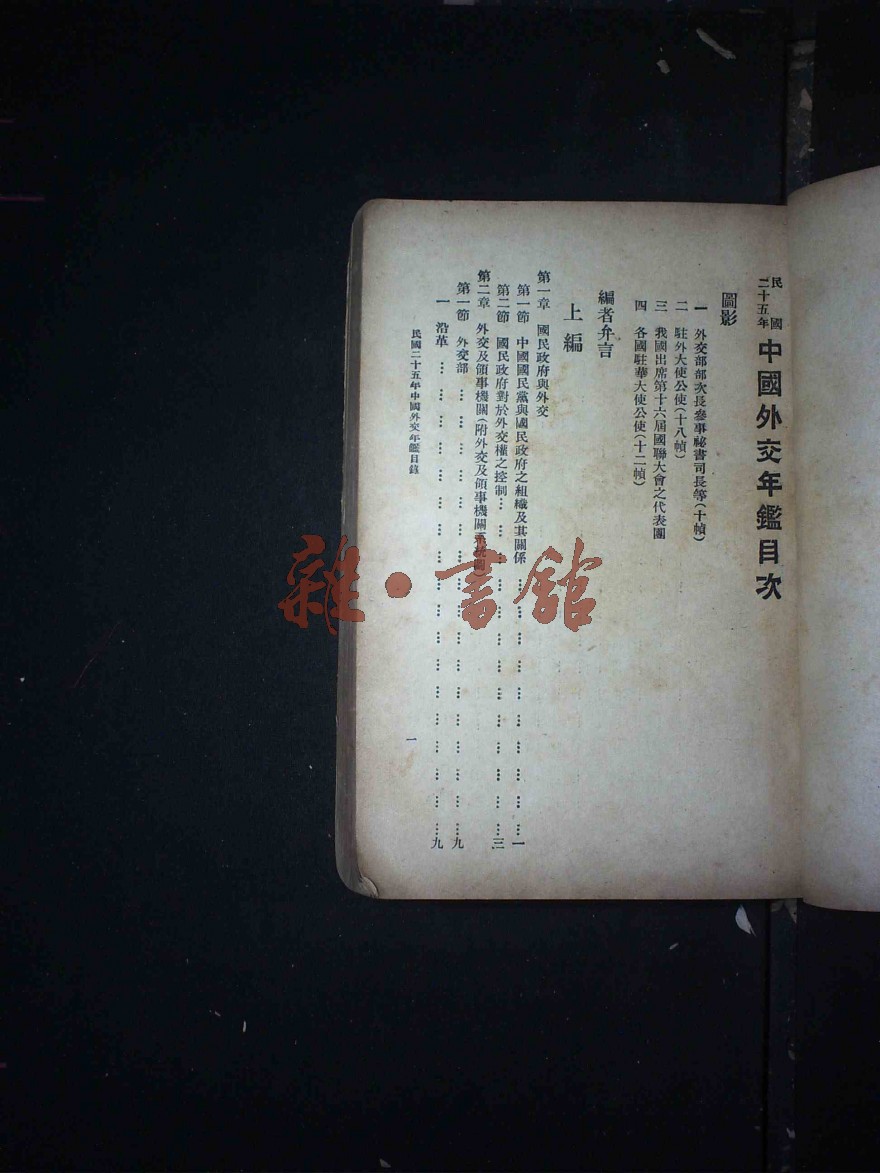 民國二十五年 中國外交年鑑目次
圖影
一 外交部部次長參事祕書司長等(十幀)
二 駐外大使公使(十八幀)
三 我國出席第十六屆國聯大會之代表團
四 各國駐華大使公使(十二幀)
編者弁言
上編
第一章 國民政府與外交
第一節 中國國民黨與國民政府之組織及其關係……一
第二節 國民政府對於外交權之控制……三
第二章 外交及領事機關(附外交及領事機關系統圖)
第一節 外交部……九
一 沿革……九
民國二十五年中國外交年鑑目錄
一
雜·書館